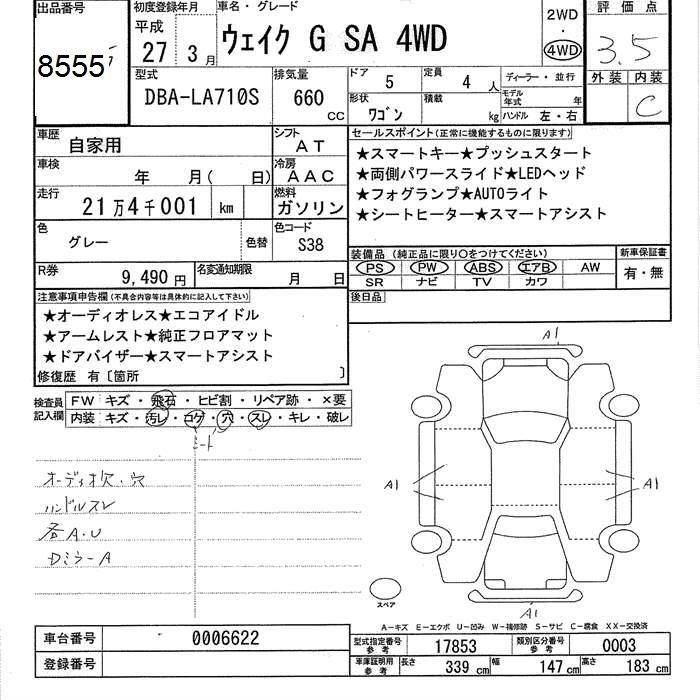 出品番号
8555
初度登録年月
平成
27 3月
車名・グレード
ウェイク G SA 4WD
2WD
・
4WD
評価点
3.5
型式
DBA-LA710S
排気量
660
CC
ドア 5
定員 4 人
形状 ワゴン
積載 kg
ディーラー・並行
モデル年式 年
ハンドル 左・右
外装 内装
C
車歴 自家用
シフト AT
車検 年 月( 日)
冷房 AAC
走行 21万4千001 km
燃料 ガソリン
色 グレー
色替
色コード S38
R券 9,490円
名変通知期限 月 日
セールスポイント(正常に機能するものに限ります)
★スマートキー★プッシュスタート
★両側パワースライド★LEDヘッド
★フォグランプ★AUTOライト
★シートヒーター★スマートアシスト
装備品 (純正品に限り○をつけてください)
新車保証書
PS PW ABS エアB AW
SR ナビ TV カワ
有・無
後日品
注意事項申告欄(不具合内容等は具体的に記入して下さい)
★オーディオレス★エコアイドル
★アームレスト★純正フロアマット
★ドアバイザー★スマートアシスト
修復歴 有〔箇所 〕
検査員記入欄
FW キズ・飛石・ヒビ割・リペア跡・×要
内装 キズ・汚レ・コゲ・穴・スレ・キレ・破レ
シート
オーディオ欠・穴
ハンドルスレ
各A・U
Dミラ-A
A1
A1
A1
A1
スペア
A-キズ E-エクボ U-凹み W-補修跡 S-サビ C-腐食 XX-交換済
車台番号 0006622
登録番号
型式指定番号 参考 17853
類別区分番号 参考 0003
車庫証明用 参考 長さ 339cm 幅 147cm 高さ 183cm